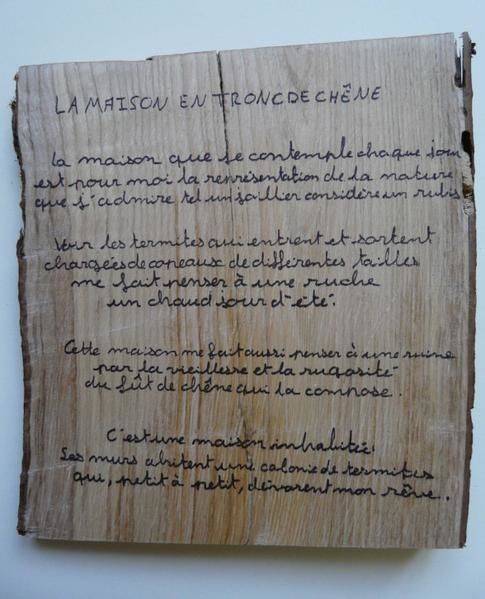 LA MAISON EN TRONC DE CHÊNE
La maison que je contemple chaque jour
est pour moi la représentation de la nature
que j'admire tel un joaillier considère un rubis
Voir les termites qui entrent et sortent
chargées de copeaux de différentes tailles
me fait penser à une ruche
un chaud jour d'été.
Cette maison me fait aussi penser à une ruine
par la vieillesse et la rugosité
du fût de chêne qui la compose.
C'est une maison inhabitée.
Ses murs abritent une colonie de termites
qui, petit à petit, dévorent mon rêve.